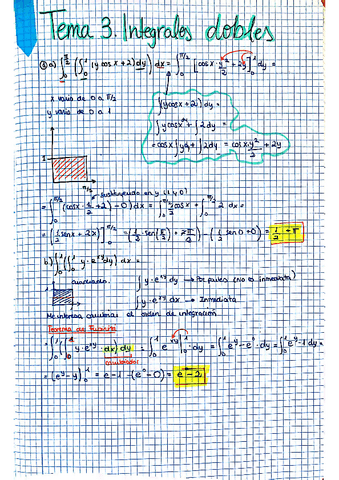 Tema 3. Integrales dobles
① a) ∫₀^{π/2} (∫₀¹ (y cos x + 2) dy) dx = ∫₀^{π/2} [cos x · y²/2 + 2y]₀¹ dx =
x varia de 0 a π/2
y varia de 0 a 1
∫(y cos x + 2) dy =
∫ y cos x + ∫ 2 dy =
= cos x ∫ y dy + ∫ 2 dy = cos x · y²/2 + 2y
π/2
1
sustituyendo en y (1 y 0)
= ∫₀^{π/2} (cos x · 1/2 + 2) - 0) dx = ∫₀^{π/2} 1/2 cos x + ∫₀^{π/2} 2 dx =
= (1/2 sen x + 2x)]₀^{π/2} = (1/2 sen(π/2) + 2π/2) - (1/2 sen 0 + 0) = 1/2 + π
b) ∫₀¹ (∫₀¹ y · e^{xy} dy) dx =
cuadrado.
∫ y · e^{xy} dy → Por partes (No es inmediata)
∫ y · e^{xy} dx → Inmediata
Me interesa cambiar el orden de integración
Teorema de Fubini
= ∫₀¹ (∫₀¹ y · e^{xy} · dx) dy = ∫₀¹ e^{xy}]₀¹ · dy = ∫₀¹ e^y - e⁰ · dy = ∫₀¹ e^y - 1 dy =
= (e^y - y)₀¹ = e - 1 - (e⁰ - 0) = e - 2